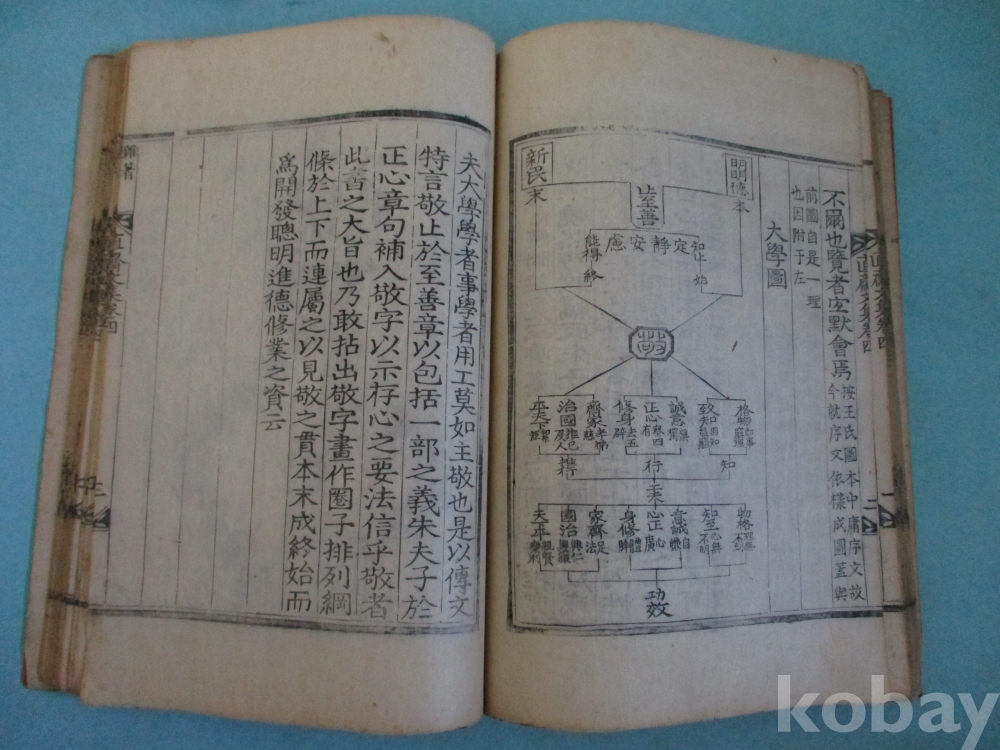 不爾也覽者宜默會焉
按王氏圖本中庸序文故
今就序文依樣成圖蓋與
前圖自是一理
也因附于左
大學圖
明明德
本
新民
末
止至善
知止 始
定靜安慮
能得 終
敬
格物
致知
誠意
正心
修身
齊家
治國
平天下
知
行
推
物格
知至
意誠
心正
身修
家齊
國治
天下平
功效
夫大學學者事學者用工莫如主敬也是以傳文
特言敬止於至善章以包括一部之義朱夫子於
正心章句補入敬字以示存心之要法信乎敬者
此書之大旨也乃敢拈出敬字畫作圈子排列綱
條於上下而連屬之以見敬之貫本末成終始而
爲開發聰明進德修業之資云
雜著
kobay